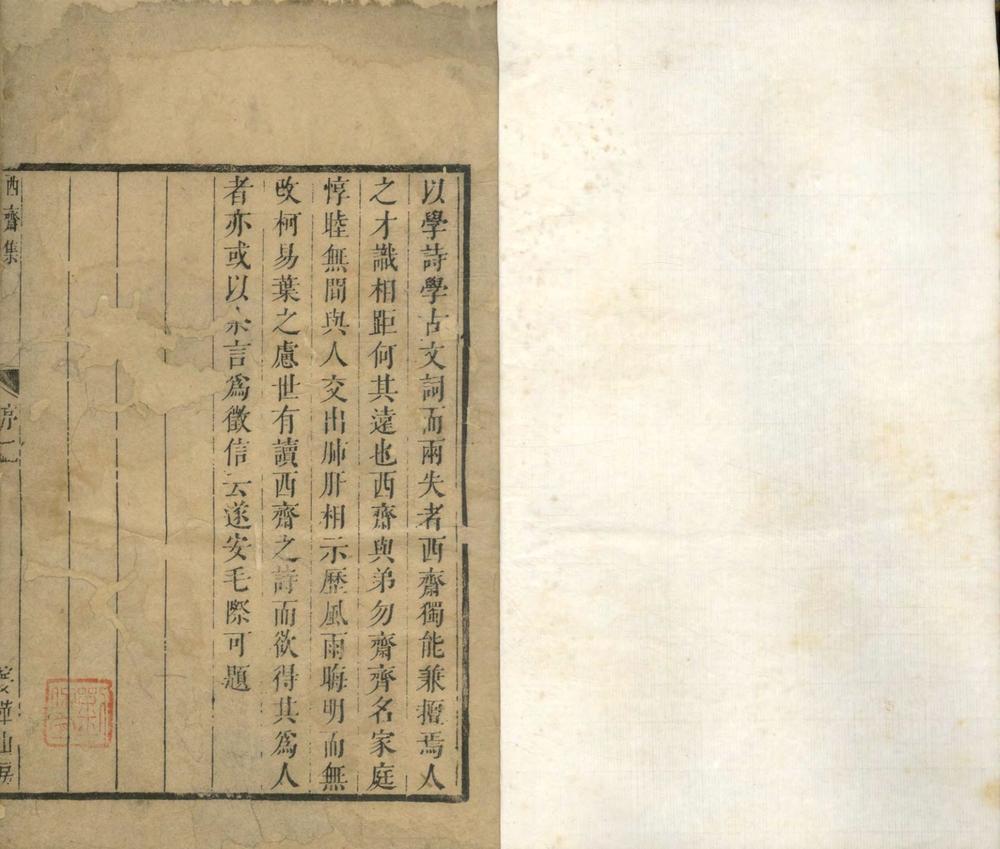 以學詩學古文詞而兩失者西齋獨能兼擅焉人
之才識相距何其遠也西齋與弟勿齋齊名家庭
惇睦無間與人交出肺肝相示歷風雨晦明而無
改柯易葉之慮世有讀西齋之詩而欲得其爲人
者亦或以余言爲徵信云遂安毛際可題
西齋集
序二
山房